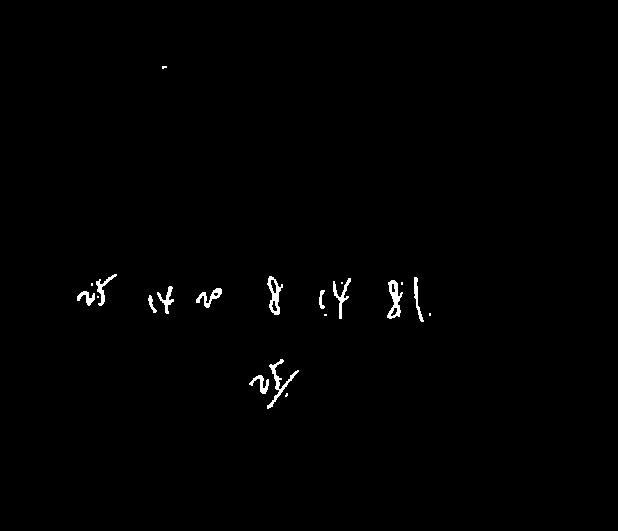 25 14 20 8 14 81
25/